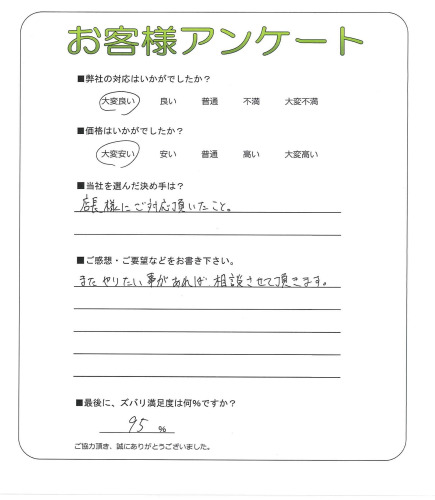 お客様アンケート
■弊社の対応はいかがでしたか？
大変良い 良い 普通 不満 大変不満
■価格はいかがでしたか？
大変安い 安い 普通 高い 大変高い
■当社を選んだ決め手は？
店長様にご対応頂いたこと。
■ご感想・ご要望などをお書き下さい。
またやりたい事があれば相談させて頂きます。
■最後に、ズバリ満足度は何%ですか？
95 %
ご協力頂き、誠にありがとうございました。